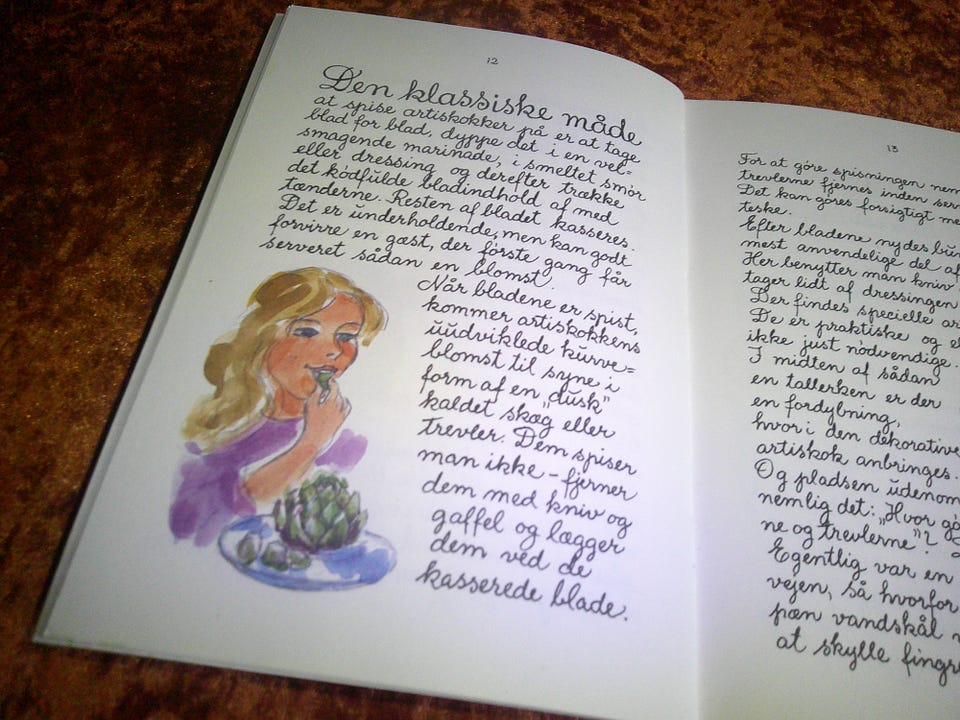 12
Den klassiske måde
at spise artiskokker på er at tage
blad for blad, dyppe det i en vel=
smagende marinade, i smeltet smör
eller dressing og derefter trække
det ködfulde bladindhold af med
tænderne. Resten af bladet kasseres.
Det er underholdende, men kan godt
forvirre en gæst, der förste gang får
serveret sådan en blomst.
Når bladene er spist,
kommer artiskokkens
uudviklede kurve=
blomst til syne i
form af en „dusk"
kaldet skæg eller
trevler. Dem spiser
man ikke – fjerner
dem med kniv og
gaffel og lægger
dem ved de
kasserede blade.
13
For at göre spisningen nem
trevlerne fjernes inden
Det kan göres forsigtigt
teske.
Efter bladene nydes
mest anvendelige del af
Her benytter man kniv
tager lidt af dressingen
Der findes specielle
De er praktiske og
ikke just nödvendige.
I midten af sådan
en tallerken er der
en fordybning,
hvor i den
artiskok anbringes.
Og pladsen
nemlig det: „Hvor
ne og trevlerne"?
Egentlig var en
vejen, så hvorfor
pæn vandskål
at skylle